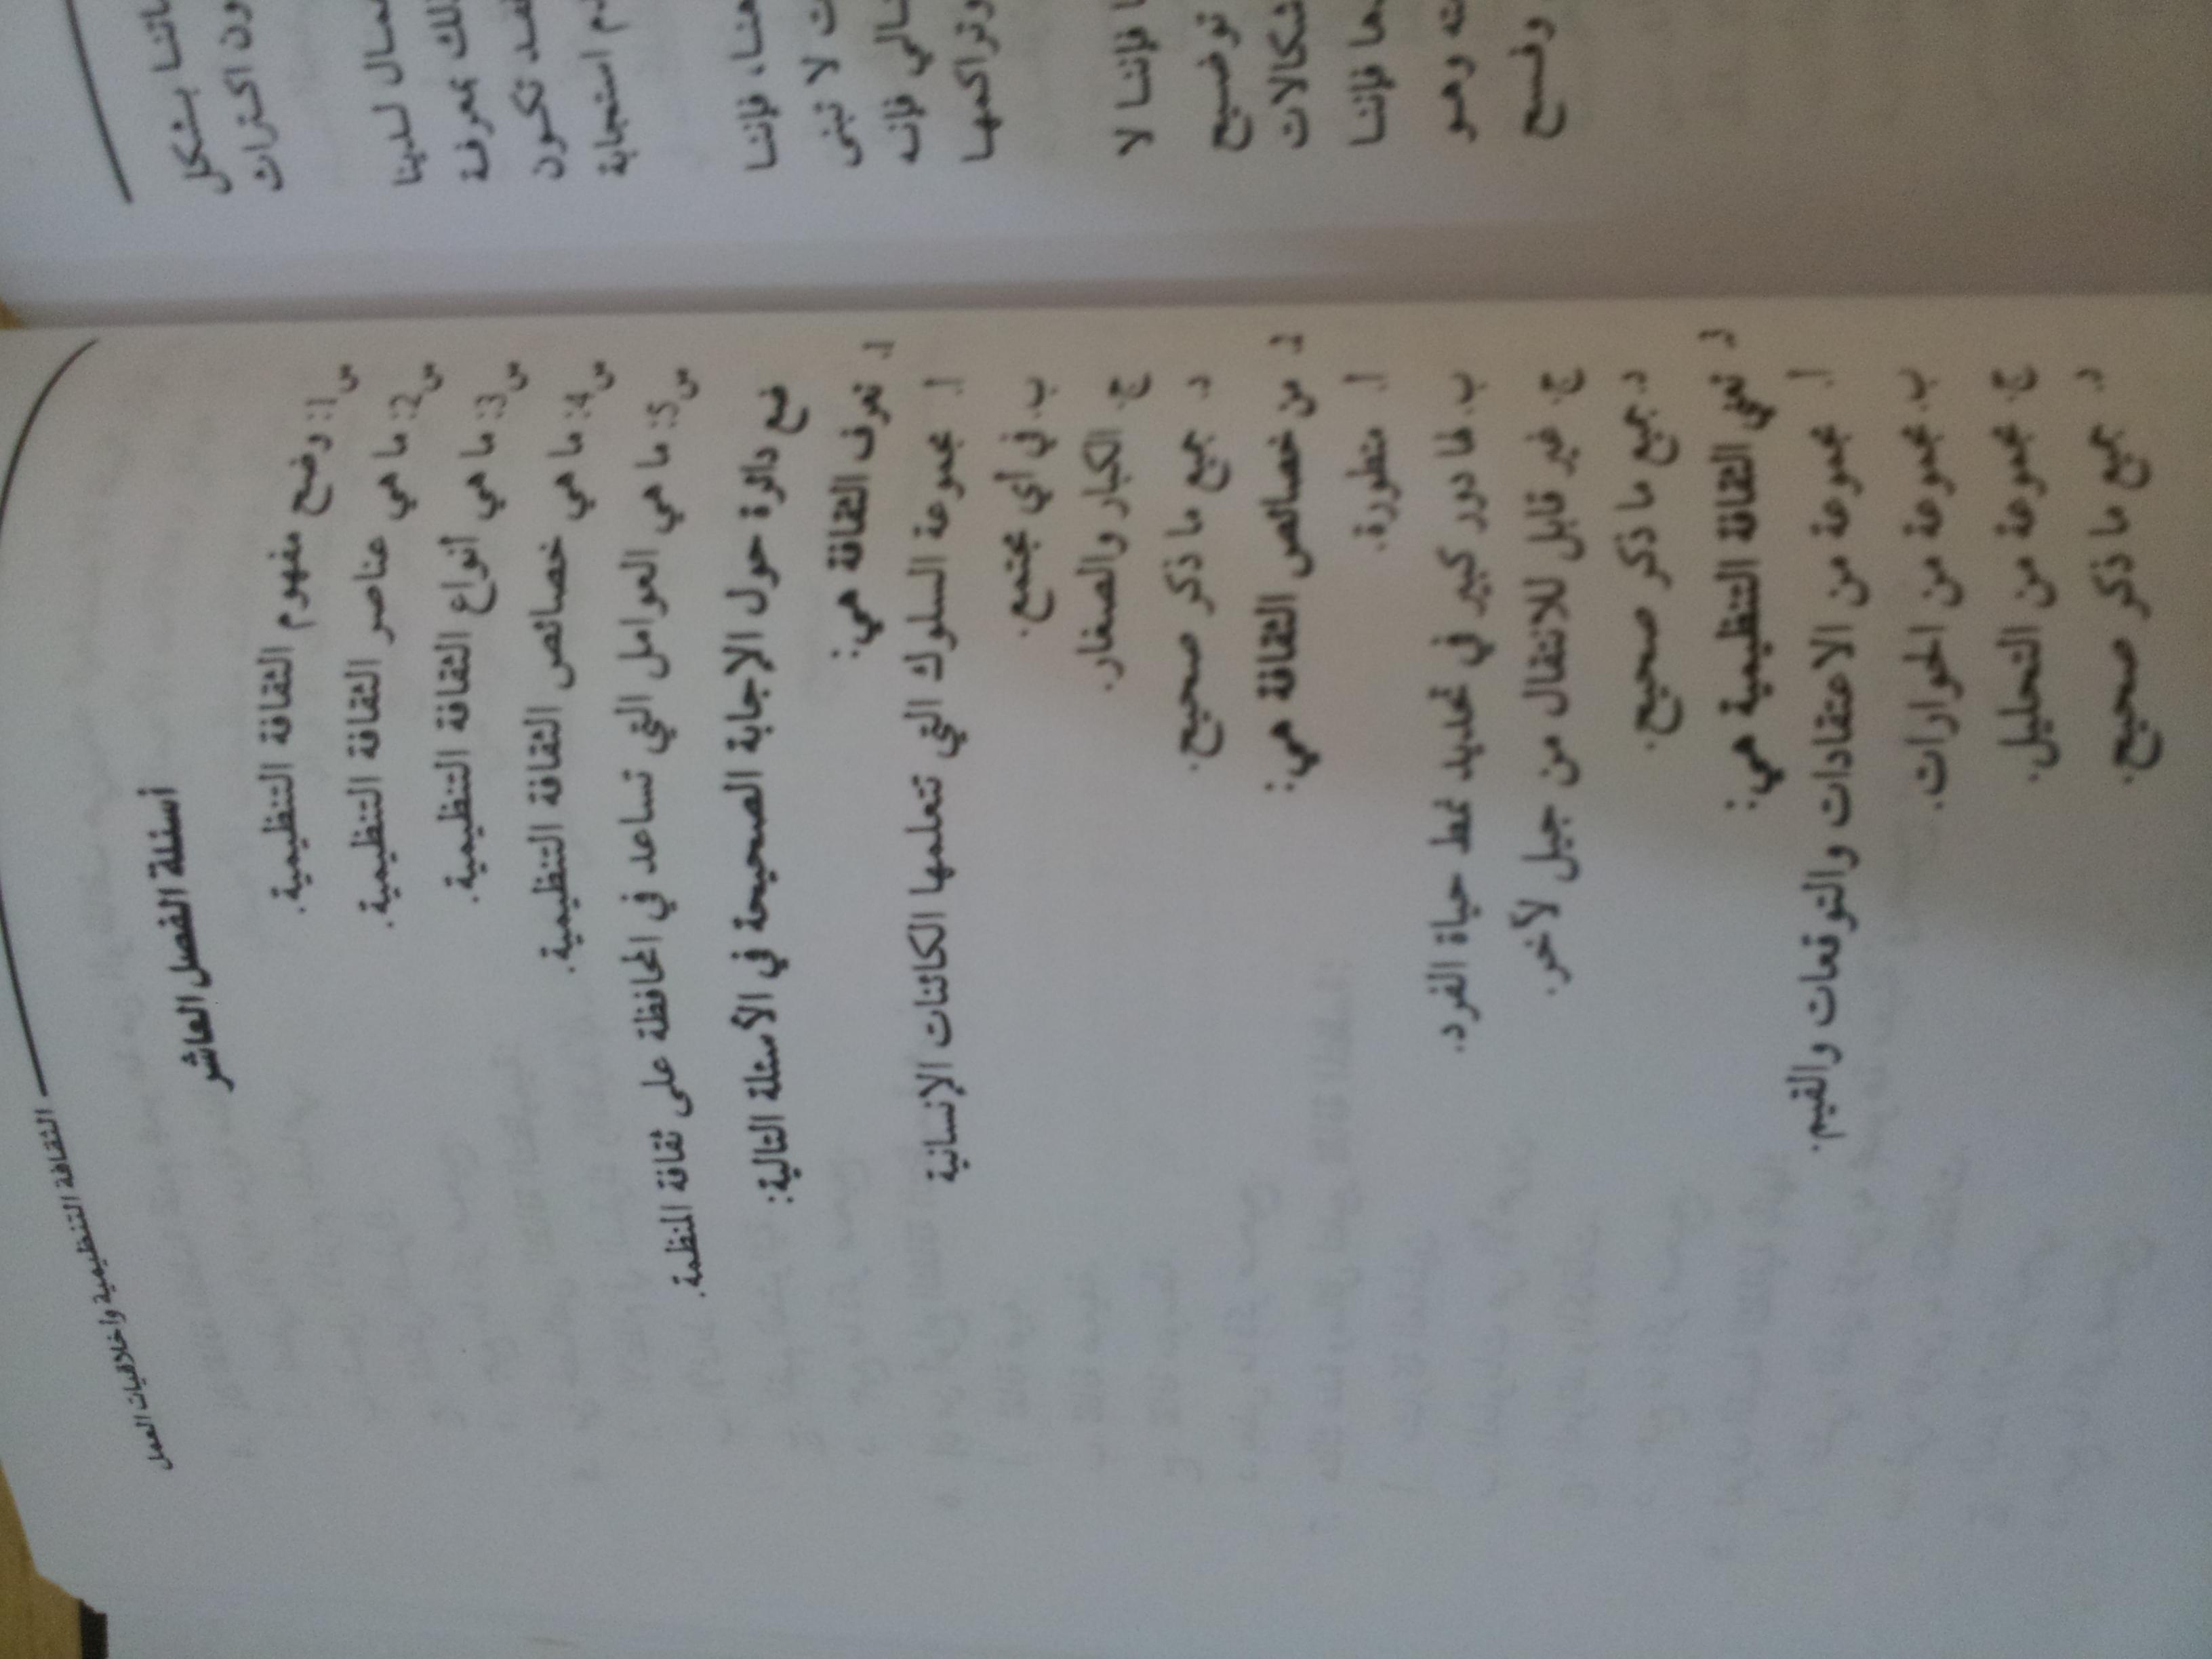 الثقافة التنظيمية واخلاقيات العمل
أسئلة الفصل العاشر
س1: وضح مفهوم الثقافة التنظيمية.
س2: ما هي عناصر الثقافة التنظيمية.
س3: ما هي أنواع الثقافة التنظيمية.
س4: ما هي خصائص الثقافة التنظيمية.
س5: ما هي العوامل التي تساعد في المحافظة على ثقافة المنظمة.
ضع دائرة حول الإجابة الصحيحة في الأسئلة التالية:
1. تعرف الثقافة هي:
أ. مجموعة السلوك التي تتعلمها الكائنات الإنسانية
ب. في أي مجتمع.
ج. الكبار والصغار.
د. جميع ما ذكر صحيح.
2. من خصائص الثقافة هي:
أ. متطورة.
ب. لها دور كبير في تحديد نمط حياة الفرد.
ج. غير قابل للانتقال من جيل لأخر.
د. جميع ما ذكر صحيح.
3. تعني الثقافة التنظيمية هي:
أ. مجموعة من الاعتقادات والتوقعات والقيم.
ب. مجموعة من الحوارات.
ج. مجموعة من التحليل.
د. جميع ما ذكر صحيح.
بشكل
اكتراث
لدينا
بمعرفة
تكون
استجابة
فإننا
لا تبنى
فإنه
وتراكمها
فإننا لا
توضيح
فإننا
وهو
وفسح